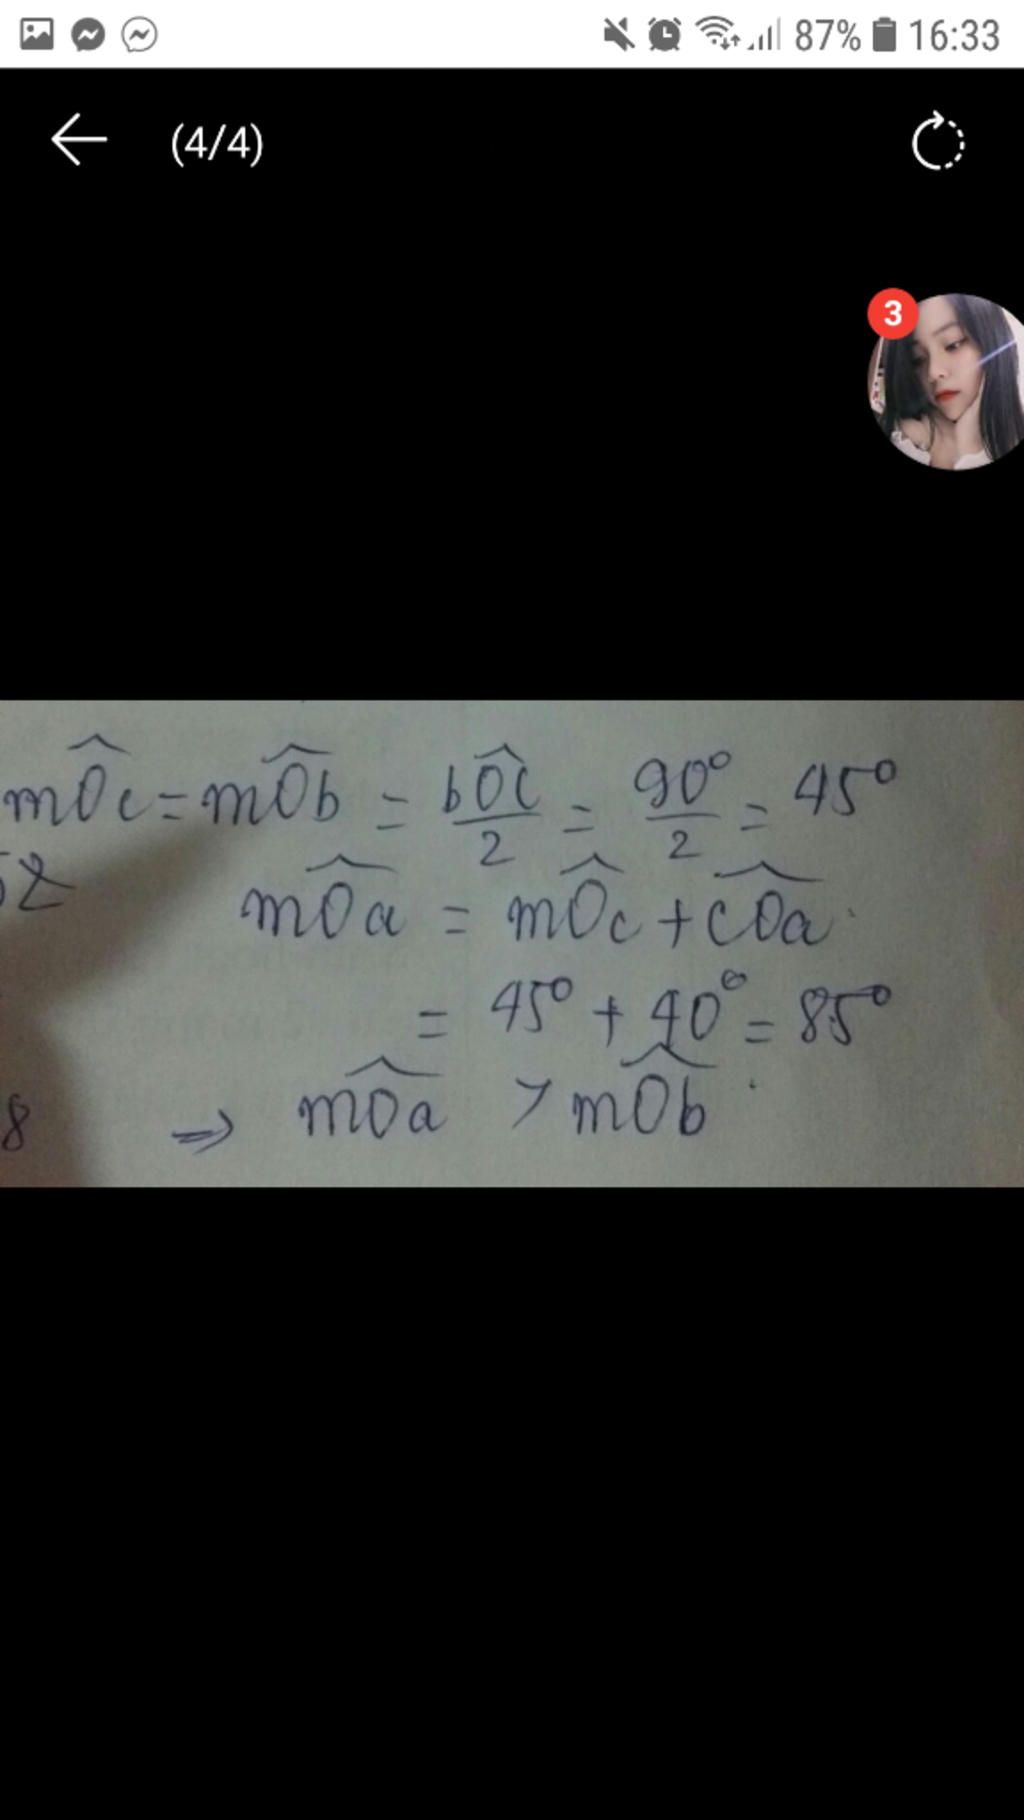 87% 16:33
(4/4)
3
mOc = mOb = bOc/2 = 90°/2 = 45°
mOa = mOc + cOa
= 45° + 40° = 85°
8 ⇒ mOa > mOb